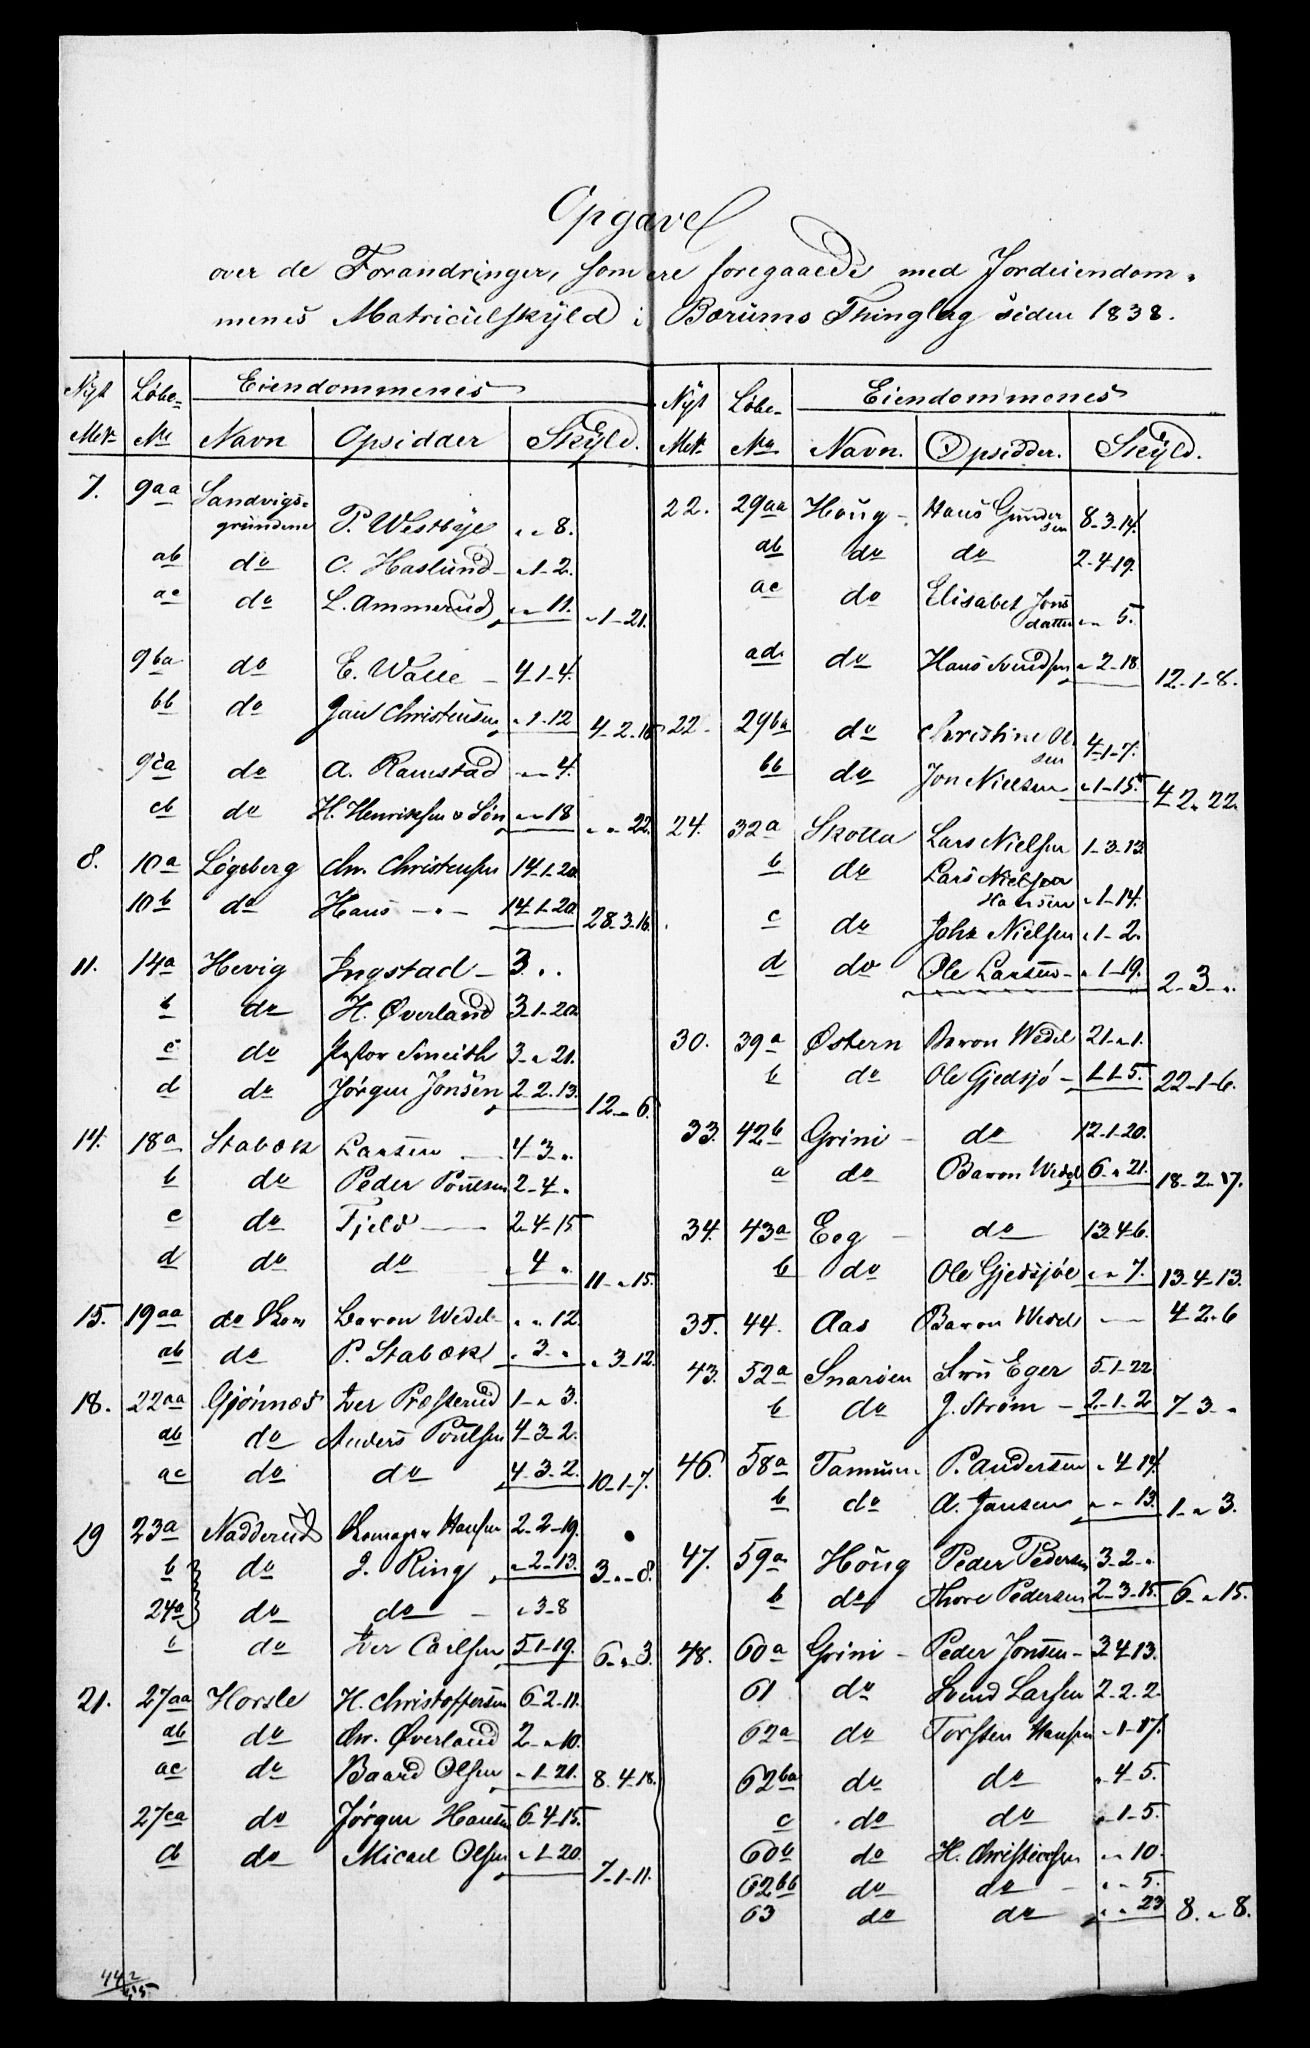 Opgave
over de Forandringer, som ere foregaaede med Jordeiendom-
menes Matriculskyld i Bærums Thinglag siden 1838.
Nyt Løbe- Eiendommenes
Mat: No Navn Opsidder Skyld.
7. 9aa Sandvigs-
grundene P. Westbye " " 8.
ab do C. Haslund " 1-2.
ac do L. Ammerud " " 11. " 1-21.
9ba do E. Walle 4-1-4.
bb do Jan Christensen " 1-12 4-2-16
9ca do A. Ramstad " " 4.
cb do H. Henriksen & Søn " " 18 " " 22.
8. 10a Løgeberg Chr. Christensen 14-1-20
10b do Hans - " - 14-1-20 28-3-16.
11. 14a Høvig Ingstad 3 " "
b do H. Øverland 3-1-20
c do Pastor Smith 3 " 21.
d do Jörgen Jonsen 2-2-13. 12 " 6.
14. 18a Stabæk Larsen 4-3 "
b do Peder Poulsen 2-4 "
c do Fjeld 2-4-15
d do do " 4 " 11 " 15.
15. 19aa do Baron Wedel " " 12.
ab do P. Stabæk " 3 " " 3-12.
18. 22aa Gjönnæs Iver Præsterud 1 " 3.
ab do Anders Poulsen 4-3-2.
ac do do 4-3-2. 10-1-7.
19 23a Nadderud Hansen 2-2-19.
b do J. Ring " 2-13. 3 " 8.
24a do do " 3-8
b do Iver Carlsen 5-1-19. 6 " 3.
21. 27aa Horsle H. Christoffersen 6-2-11.
ab do Chr. Øverland 2 " 10.
ac do Baard Olsen " 1-21. 8-4-18.
27ca do Jörgen Hansen 6-4-15.
cb do Micael Olsen " 1-20. 7-1-11.
44 2/55
Nyt Løbe- Eiendommenes
Mat: No Navn. Opsidder. Skyld.
22. 29aa Houg Hans Gunder
sen 8-3-14.
ab do do 2-4-19.
ac do Elisabet Jons
datter " " 5.
ad do Hans Svendsen " 2-18. 12-1-8.
22 29ba do Christine Ol
sen 4-1-7.
bb do Jon Nielsen " 1-15. 4-2-22.
24. 32a Skotta Lars Nielsen 1-3-13
b do Lars Nielsen
Hansen " 1-14.
c do Johs Nielsen " 1-2.
d do Ole Larsen " 1-19. 2-3 "
30. 39a Østern Baron Wedel 21 " 1.
b do Ole Gjedsjø 1-1-5. 22-1-6.
33. 42b Grini do 12-1-20.
a do Baron Wedel 6 " 21. 18-2-17.
34. 43a Eeg do 13-4-6.
b do Ole Gjedsjøe " " 7. 13-4-13.
35. 44. Aas Baron Wedel 4-2-6
43. 52a Snarøen Fru Eger 5-1-22
b do J. Strøm 2-1-2 7-3 "
46. 58a Tanum P. Andersen " 4-14.
b do A. Jansen " " 13. 1 " 3.
47. 59a Höug Peder Pedersen 3-2 "
b do Thore Pedersen 2-3-15. 6 " 15.
48. 60a Grini Peder Jonsen 3-4-13.
61 do Svend Larsen 2-2-2.
62a do Torsten Hansen " 1-17.
62ba do do " 4-5.
c do do " 1-5.
60b do H. Christiansen " " 10.
62bb do do " " 5.
63 do do " " 23 8 " 8.